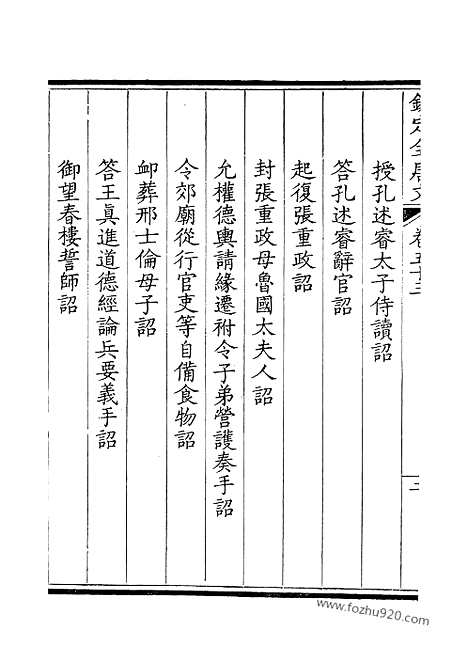 授孔述睿太子侍讀詔
答孔述睿辭官詔
起復張重政詔
封張重政母魯國太夫人詔
允權德輿請緣遷祔令子弟營護奏手詔
令郊廟從行官吏等自備食物詔
卹葬邢士倫母子詔
答王真進道德經論兵要義手詔
御望春樓誓師詔
www.fozhu920.com